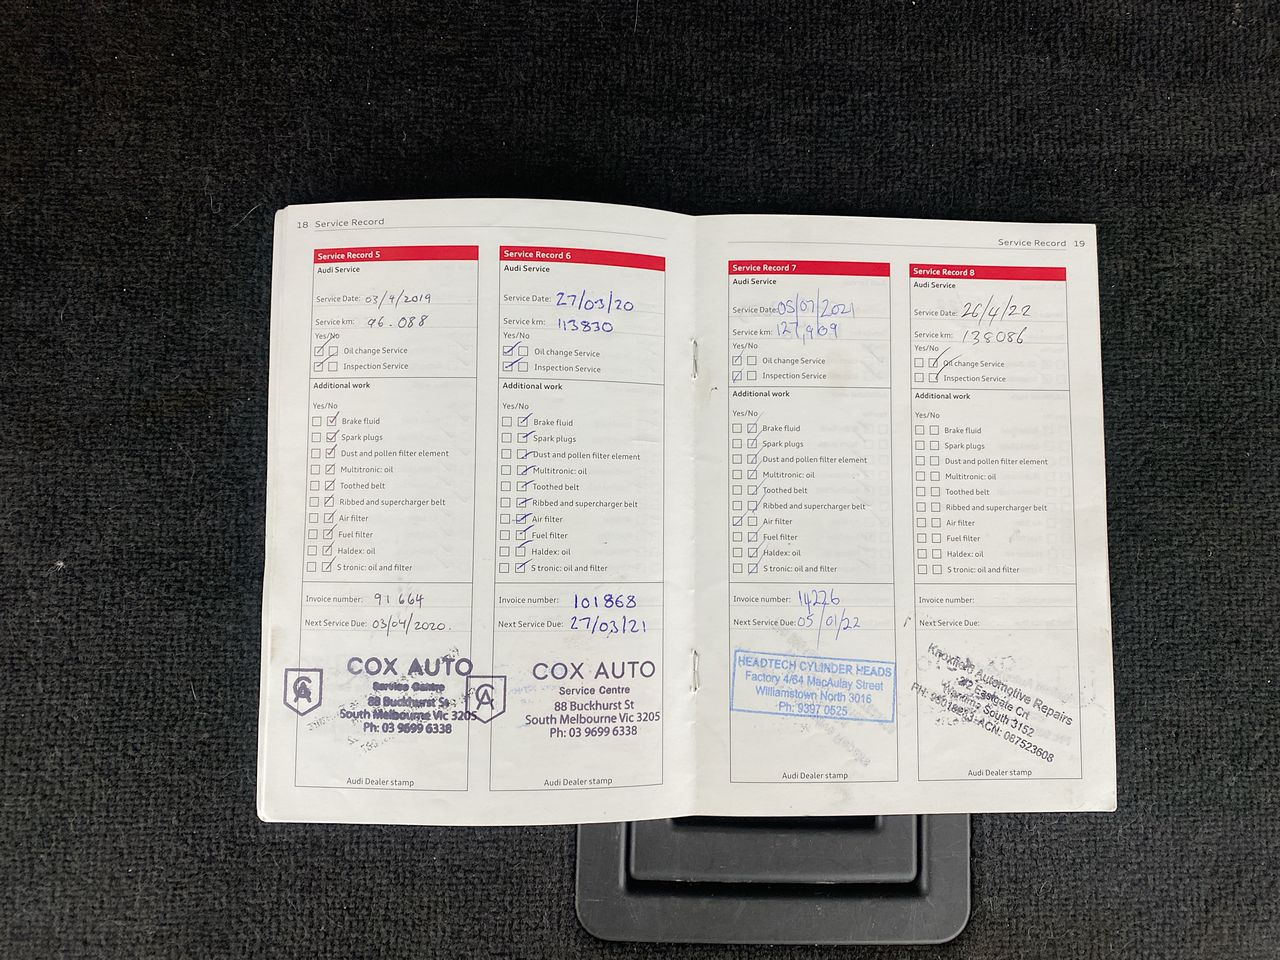 18 Service Record
Service Record 5
Audi Service
Service Date: 03/4/2019
Service km: 96.088
Yes/No
Oil change Service
Inspection Service
Additional work
Yes/No
Brake fluid
Spark plugs
Dust and pollen filter element
Multitronic: oil
Toothed belt
Ribbed and supercharger belt
Air filter
Fuel filter
Haldex: oil
S tronic: oil and filter
Invoice number: 91664
Next Service Due: 03/04/2020.
CA
COX AUTO
Service Centre
88 Buckhurst St
South Melbourne Vic 3205
Ph: 03 9699 6338
Audi Dealer stamp
Service Record 6
Audi Service
Service Date: 27/03/20
Service km: 113830
Yes/No
Oil change Service
Inspection Service
Additional work
Yes/No
Brake fluid
Spark plugs
Dust and pollen filter element
Multitronic: oil
Toothed belt
Ribbed and supercharger belt
Air filter
Fuel filter
Haldex: oil
S tronic: oil and filter
Invoice number: 101868
Next Service Due: 27/03/21
CA
COX AUTO
Service Centre
88 Buckhurst St
South Melbourne Vic 3205
Ph: 03 9699 6338
Audi Dealer stamp
Service Record 19
Service Record 7
Audi Service
Service Date: 05/07/2021
Service km: 127,909
Yes/No
Oil change Service
Inspection Service
Additional work
Yes/No
Brake fluid
Spark plugs
Dust and pollen filter element
Multitronic: oil
Toothed belt
Ribbed and supercharger belt
Air filter
Fuel filter
Haldex: oil
S tronic: oil and filter
Invoice number: 14226
Next Service Due: 05/01/22
HEADTECH CYLINDER HEADS
Factory 4/64 MacAulay Street
Williamstown North 3016
Ph: 9397 0525
Audi Dealer stamp
Service Record 8
Audi Service
Service Date: 26/4/22
Service km: 138086
Yes/No
Oil change Service
Inspection Service
Additional work
Yes/No
Brake fluid
Spark plugs
Dust and pollen filter element
Multitronic: oil
Toothed belt
Ribbed and supercharger belt
Air filter
Fuel filter
Haldex: oil
S tronic: oil and filter
Invoice number:
Next Service Due:
Knoxfield Automotive Repairs
2/2 Eastgale Crt
Wantirna South 3152
PH: ACN: 087523608
Audi Dealer stamp